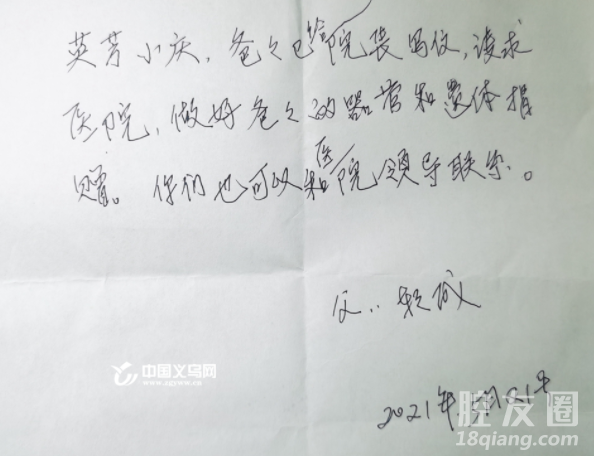 英芳小庆,爸々已给院长写仪,请求
医院,做好爸々的器官和遗体捐
赠。你们也可以和医院领导联系。
父:
2021年
中国义乌网
www.zgyww.cn
胜友圈
18qiang.com